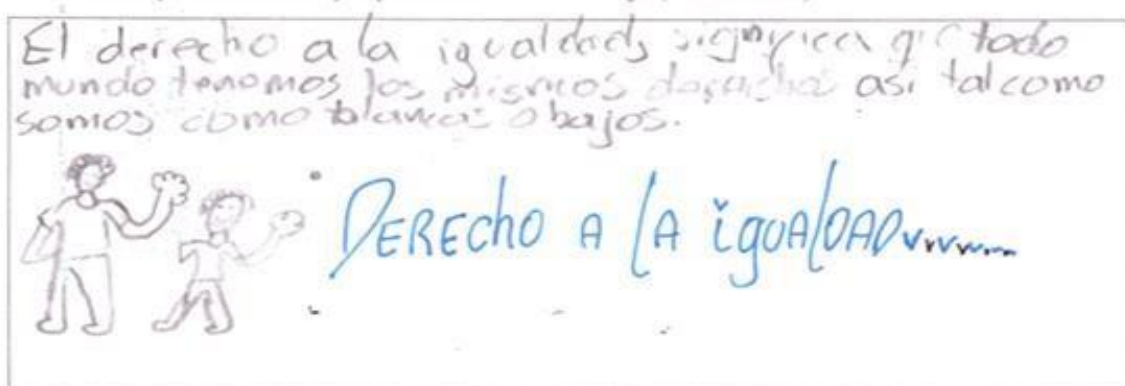 El derecho a la igualdad, significa q' todo
mundo tenemos los mismos derechos así tal como
somos como blancos o bajos.
DERECho A lA igUAlDAD